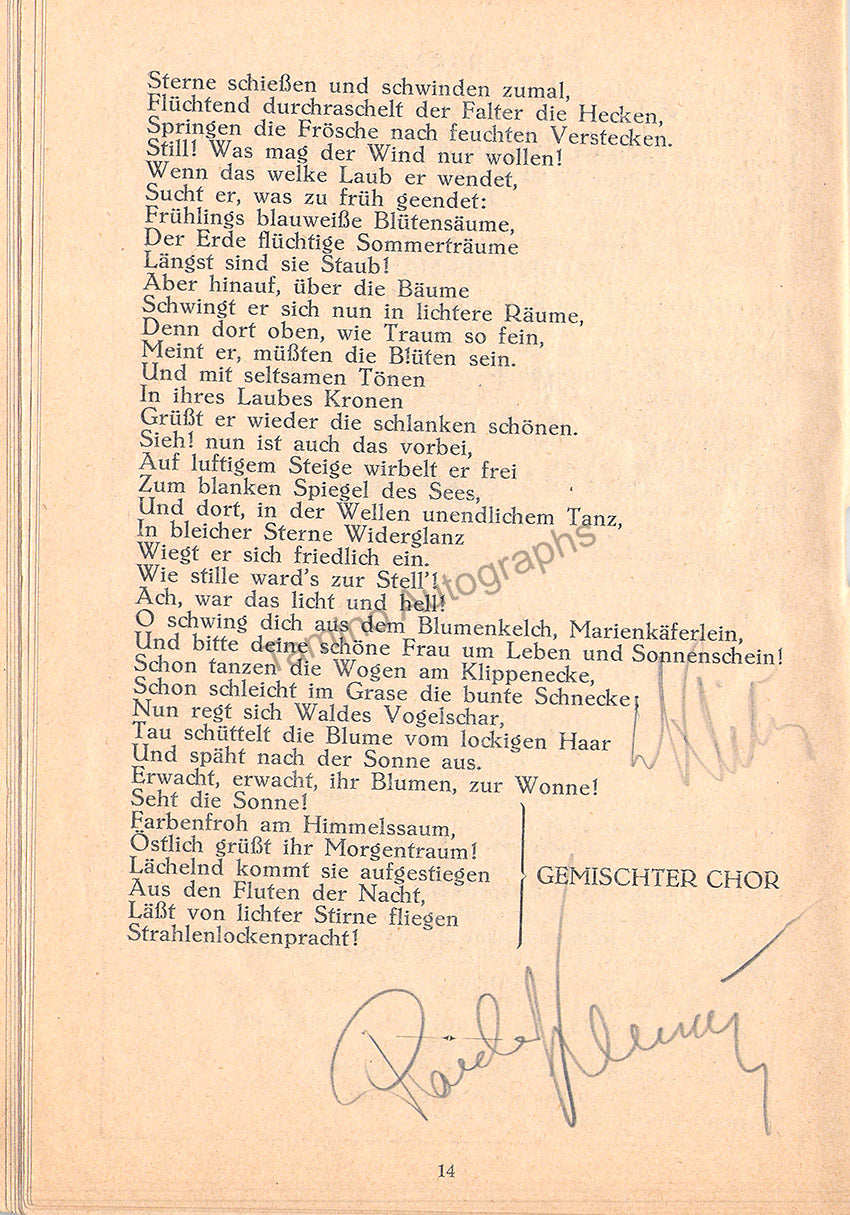 Sterne schießen und schwinden zumal,
Flüchtend durchraschelt der Falter die Hecken,
Springen die Frösche nach feuchten Verstecken.
Still! Was mag der Wind nur wollen!
Wenn das welke Laub er wendet,
Sucht er, was zu früh geendet:
Frühlings blauweiße Blütensäume,
Der Erde flüchtige Sommerträume
Längst sind sie Staub!
Aber hinauf, über die Bäume
Schwingt er sich nun in lichtere Räume,
Denn dort oben, wie Traum so fein,
Meint er, müßten die Blüten sein.
Und mit seltsamen Tönen
In ihres Laubes Kronen
Grüßt er wieder die schlanken schönen.
Sieh! nun ist auch das vorbei,
Auf luftigem Steige wirbelt er frei
Zum blanken Spiegel des Sees,
Und dort, in der Wellen unendlichem Tanz,
In bleicher Sterne Widerglanz
Wiegt er sich friedlich ein.
Wie stille ward's zur Stell'!
Ach, war das licht und hell!
O schwing dich aus dem Blumenkelch, Marienkäferlein,
Und bitte deine schöne Frau um Leben und Sonnenschein!
Schon tanzen die Wogen am Klippenecke,
Schon schleicht im Grase die bunte Schnecke;
Nun regt sich Waldes Vogelschar,
Tau schüttelt die Blume vom lockigen Haar
Und späht nach der Sonne aus.
Erwacht, erwacht, ihr Blumen, zur Wonne!
Seht die Sonne!
Farbenfroh am Himmelssaum,
Östlich grüßt ihr Morgentraum!
Lächelnd kommt sie aufgestiegen
Aus den Fluten der Nacht,
Läßt von lichter Stirne fliegen
Strahlenlockenpracht!
GEMISCHTER CHOR
Tamino Autographs
14